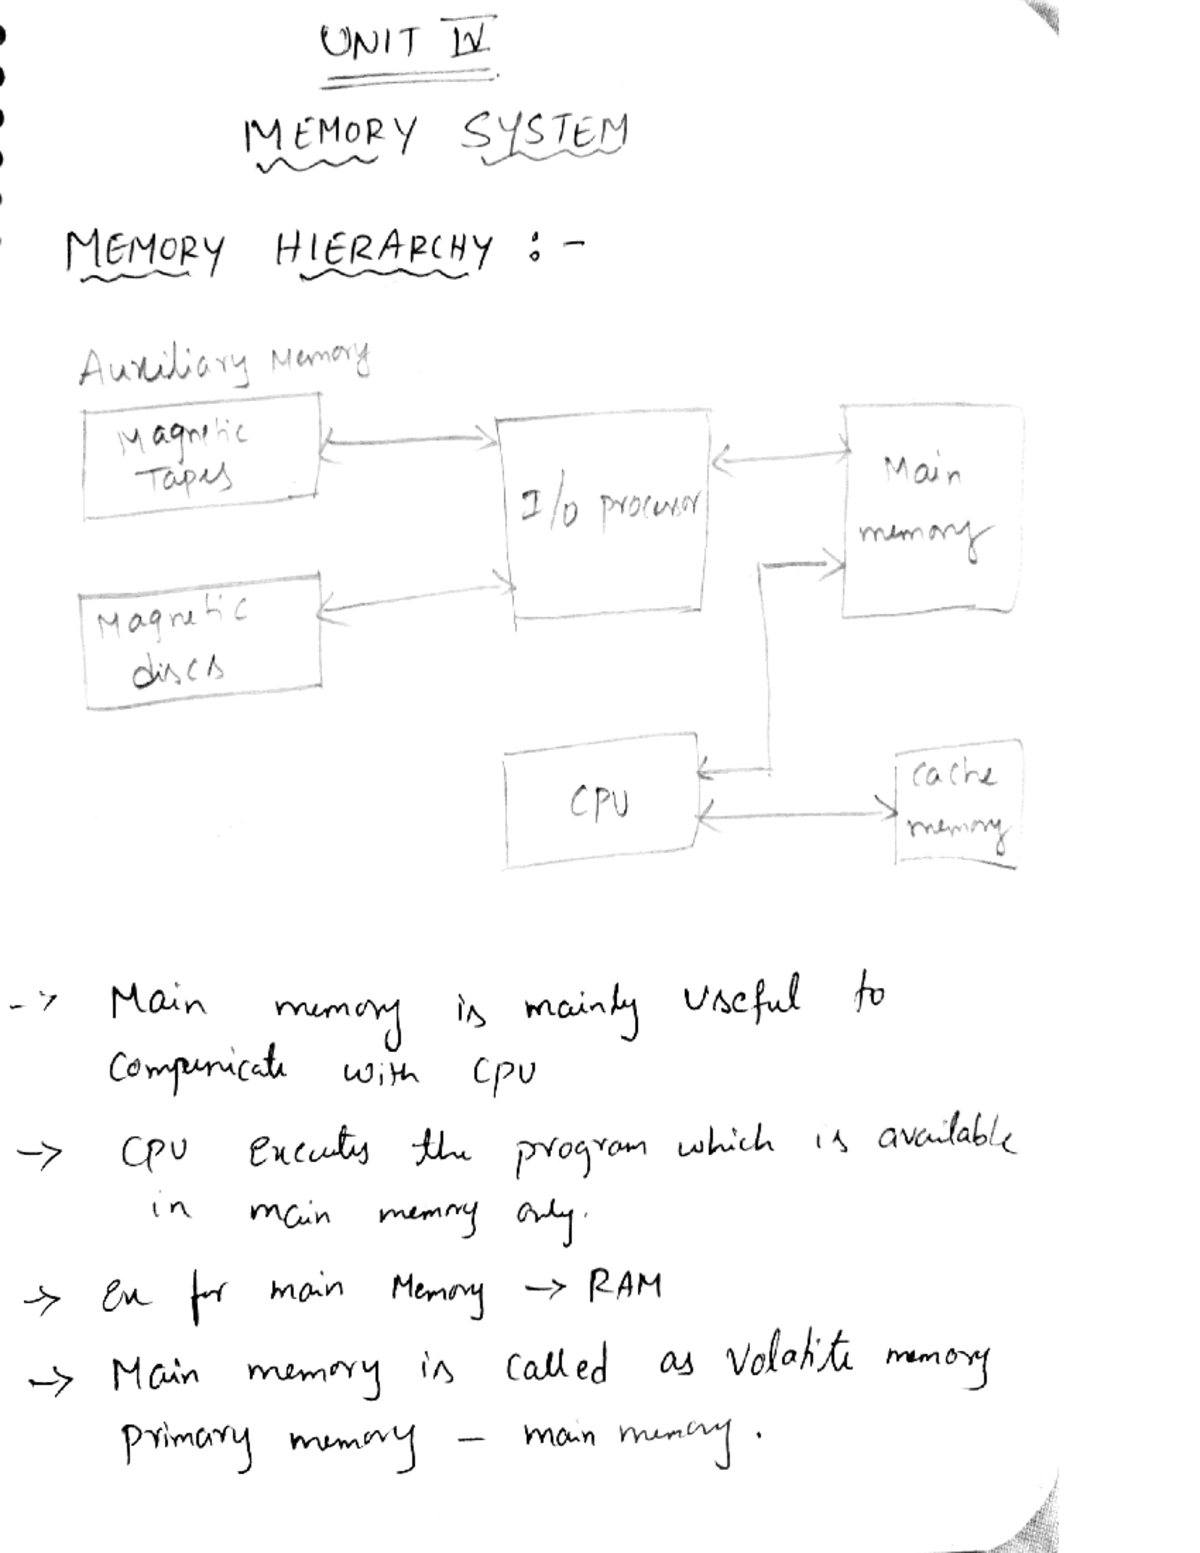 UNIT IV
MEMORY SYSTEM
MEMORY HIERARCHY :-
Auxiliary Memory
Magnetic
Tapes
I/O processor
Main
memory
Magnetic
discs
CPU
Cache
memory
-> Main memory is mainly useful to
communicate with CPU
-> CPU Executes the program which is available
in main memory only.
-> Ex for main Memory -> RAM
-> Main memory is called as Volatile memory
primary memory - main memory.